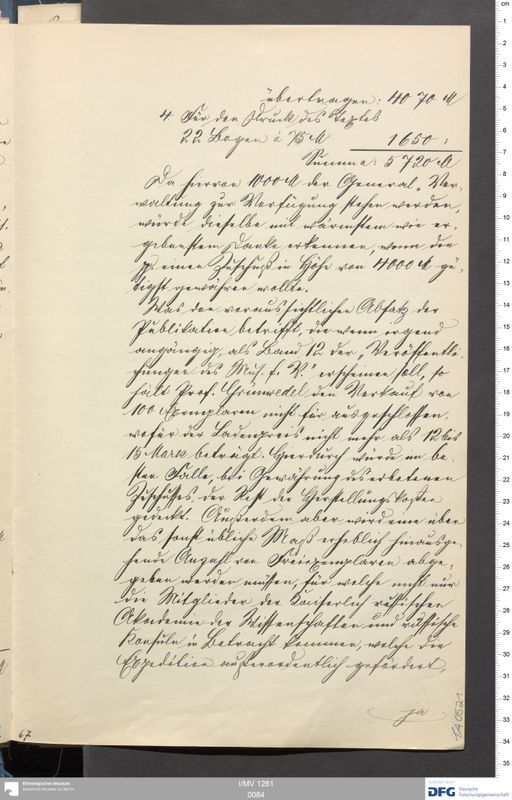 übertragen: 4070 M
4. Für den Druck des Textes
22 Bogen à 75 M 1650 :
Summa: 5720 M
Da hiervon 1000 M der General-Ver-
waltung zur Verfügung stehen werden,
würde dieselbe mit wärmstem wie er-
gebenstem Danke erkennen, wenn die
einen Zuschuß in Höhe von 4000 M gü-
tigst gewähren wollte.
Was den voraussichtlichen Absatz der
Publikation betrifft, die wenn irgend
angängig, als Band 12 der „Veröffentli-
chungen des Mus. f. V." erscheinen soll, so
hält Prof. Grünwedel den Verkauf von
100 Exemplaren nicht für ausgeschlossen,
wofür der Ladenpreis nicht mehr als 12 bis
15 Mark beträgt. Hierdurch würde im be-
sten Falle, bei Gewährung des erbetenen
Zuschusses, der Rest der Herstellungskosten
gedeckt. Außerdem aber werd eine über
das sonst übliche Maß erheblich hinausge-
hende Anzahl von Freiexemplaren abge-
geben werden müssen, für welche nicht nur
die Mitglieder der Kaiserlich russischen
Akademie der Wissenschaften und russische
Konsuln in Betracht kommen, welche die
Expedition außerordentlich gefördert,
ja
67
1A 0521
cm
1
2
3
4
5
6
7
8
9
10
11
12
13
14
15
16
17
18
19
20
21
22
23
24
25
26
27
28
29
30
31
32
33
34
35
Ethnologisches Museum
Staatliche Museen zu Berlin
I/MV 1261
0084
gefördert von
DFG Deutsche
Forschungsgemeinschaft